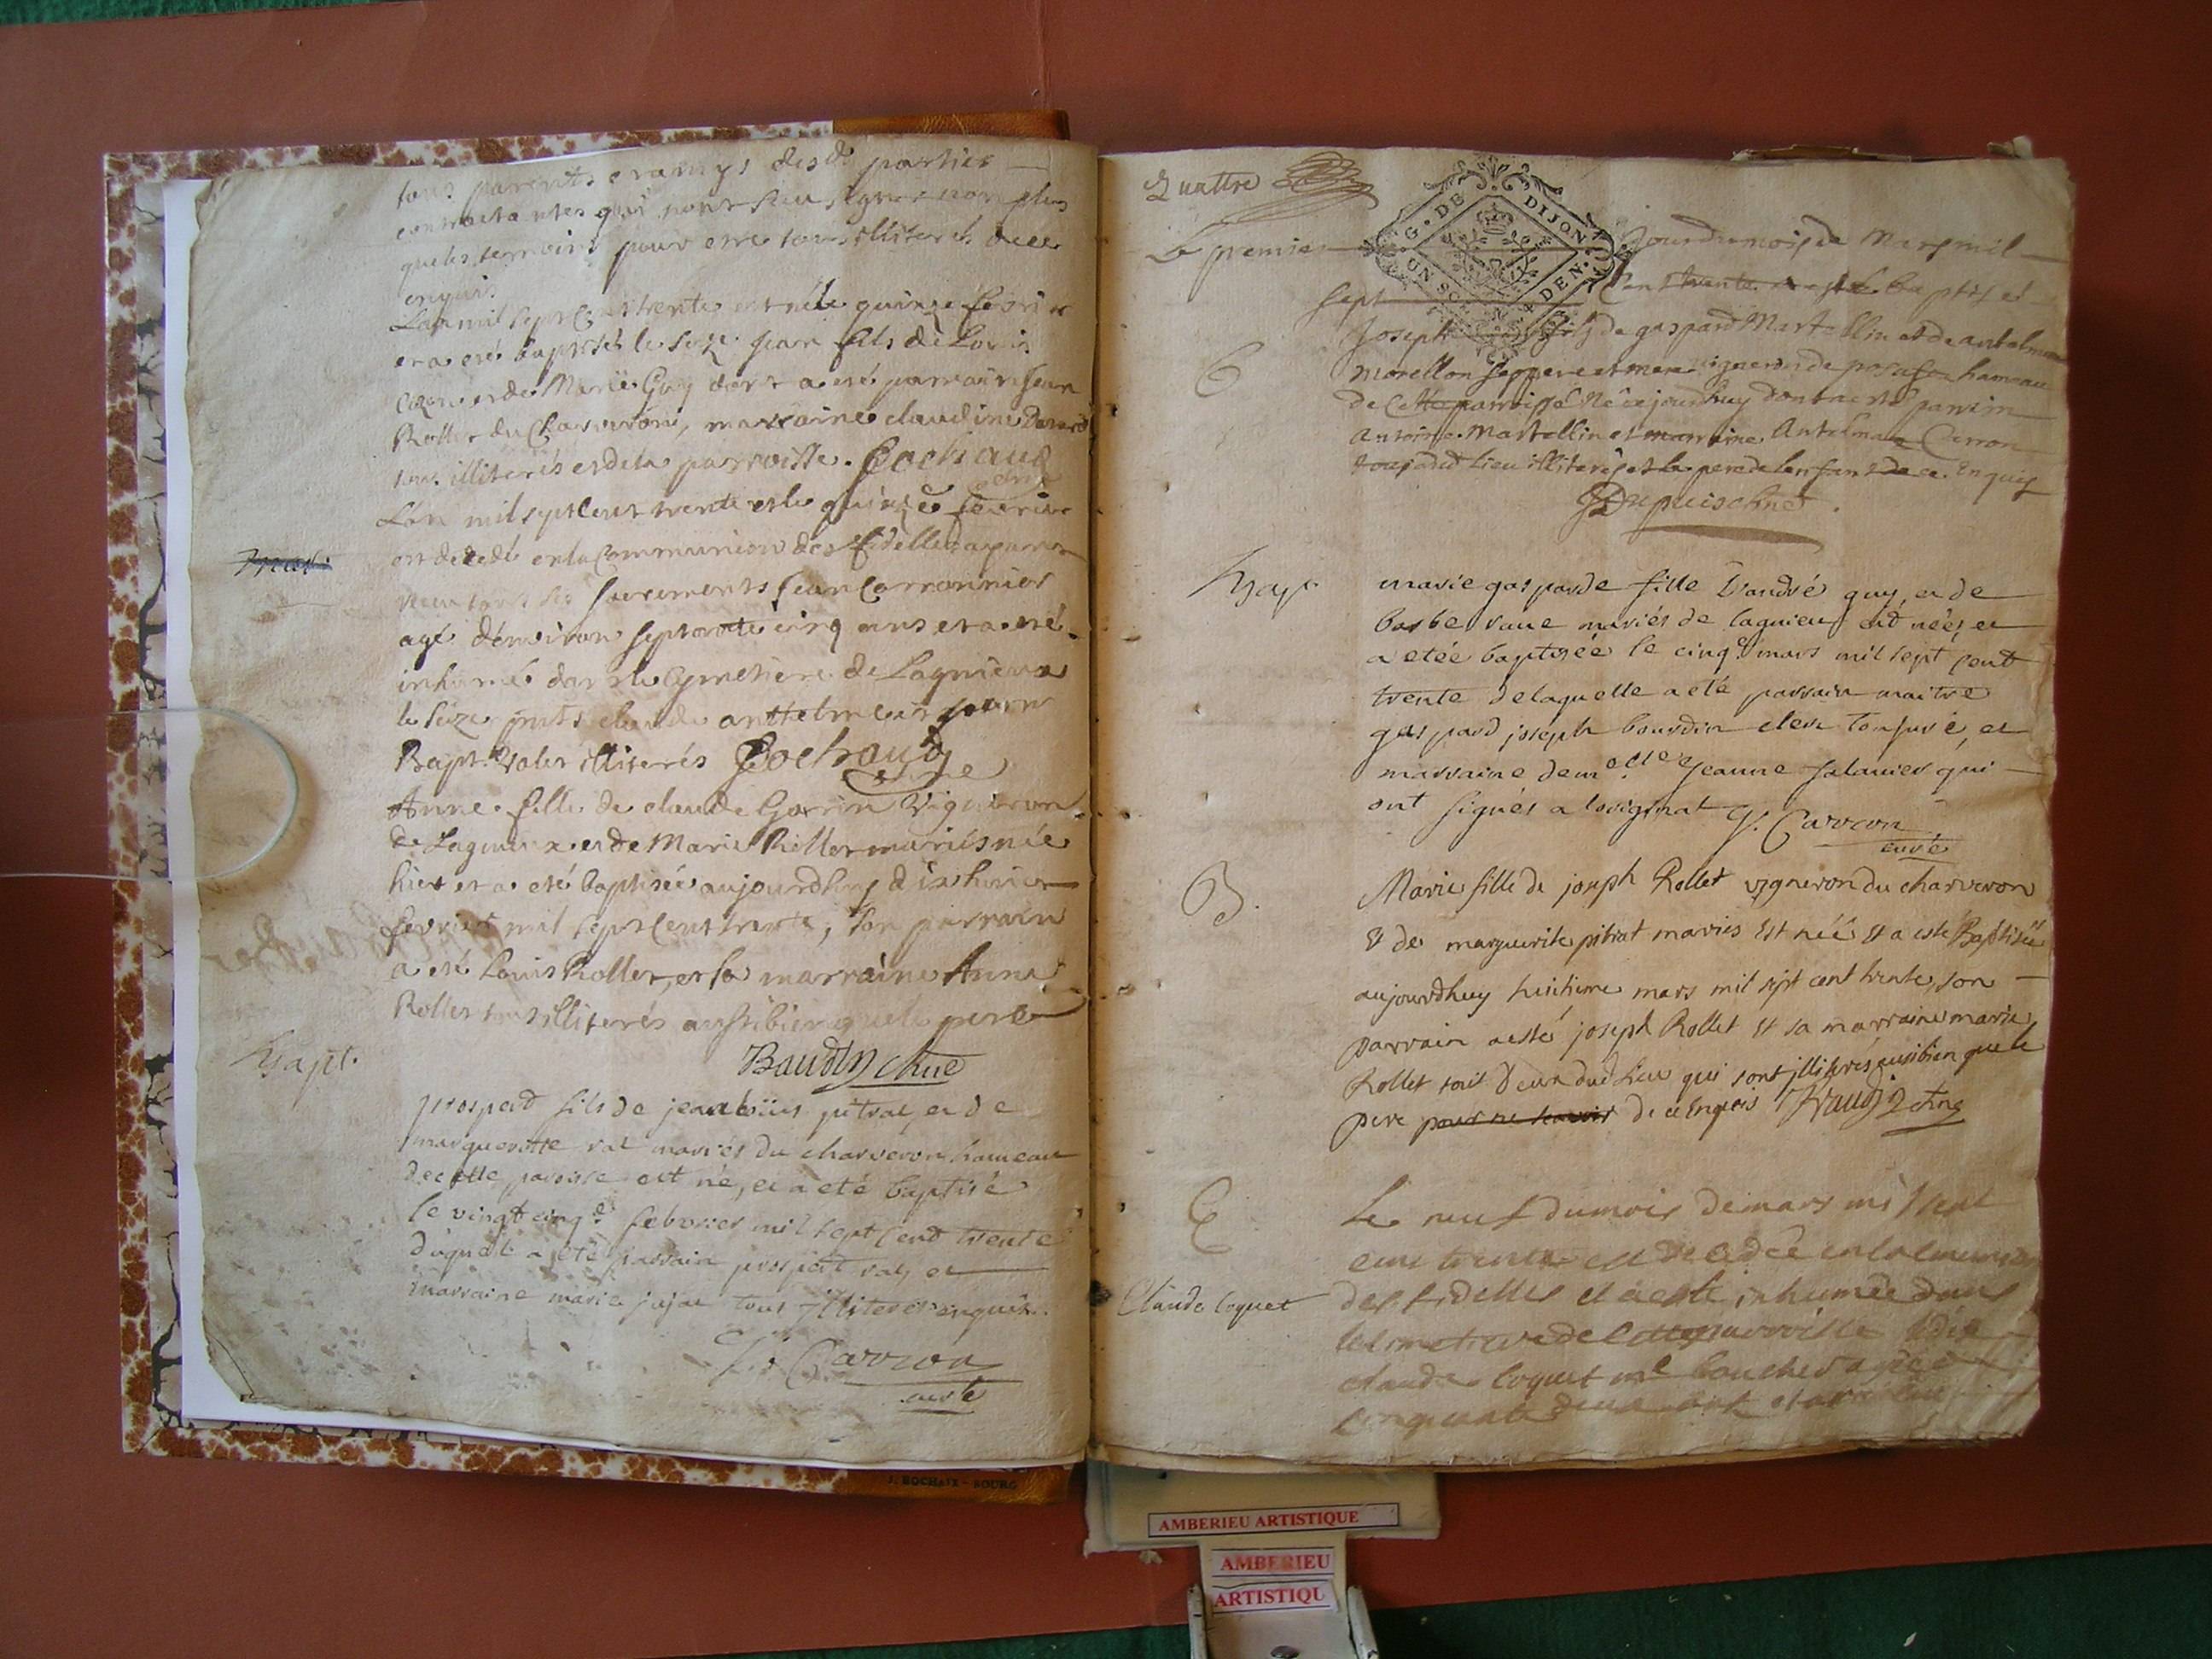 tous parents et amys des d. parties
contractantes qui n'ont sceu signer non plus
que les temoins pour estre tous illiterés de ce
enquis.
L'an mil sept cent trente est né le quinze fevrier
et a eté baptisé le seize jean fils de Louis
et de Marie Guy dont a eté parrain jean
Rollet du Charveron, marraine claudine
tous illiterés et de la parroisse. Cochaud
L'an mil sept cent trente et le quinze fevrier
est decedé en la Communion des fidelles apres
receu tous ses sacrements jean Carronnier
agé d'environ septante cinq ans et a eté
inhumé dans le Cymetiere de Lagnieux
le seize
Bapt. illiterés Cochaud
Anne fille de claude Garin Vigneron
de Lagnieux et de Marie Rollet mariés née
hier et a eté baptisée aujourdhuy dix huict
fevrier mil sept cent trente, son parrain
a eté Louis Rollet, et sa marraine Anne
Rollet tous illiterés aussi bien que le pere
Bapt.
Baudin
prosper fils de jean pitrat, et de
margueritte rat mariés du charveron hameau
de cette paroisse est né, et a eté baptisé
le vingt cinq.e febvrier mil sept cent trente
duquel a eté parrain rat, et
marraine marie tous illiterés enquis.
Carron
curé
Quattre
G. DE DIJON
UN SOL 4 DEN.
Le premier jour du mois de Mars mil
sept cent trente a esté baptisé
Joseph fils de gaspard Martellin et de antelmee
morellon ses pere et mere vigneron de posafon hameau
de Cette parroisse Né ce jourdhuy dont a esté parrin
Antoine Martellin et marraine Antelmee Carron
tous du d lieu illiterés et le pere de lenfant de ce Enquis
Dupuis
Bapt.
marie gasparde fille d'andré guy, et de
barbe mariés de lagnieu est née, et
a etée baptisée le cinq.e mars mil sept cent
trente de laquelle a eté parrain maitre
gaspard joseph bourdin clerc tonsuré, et
marraine dem.elle jeanne qui
ont signés a loriginal Carron
curé
B.
Marie fille de joseph Rollet vigneron du charveron
& de marguerite pitrat mariés Est née Et a esté Baptisée
aujourdhuy huitieme mars mil sept cent trente, son
parrain a esté joseph Rollet Et sa marraine marie
Rollet tout deux du d Lieu qui sont illiterés aussi bien que le
pere pour ne scavoir de ce Enquis Baudin
E
Claude Coquet
Le neuf du mois de mars mil sept
cent trente est decedée
des fidelles et a esté inhumée dans
le de cette parroisse
claude Coquet m.e boucher agée
cinquante deux ans
J. ROCHAIX - BOURG
AMBERIEU ARTISTIQUE
AMBERIEU
ARTISTIQU